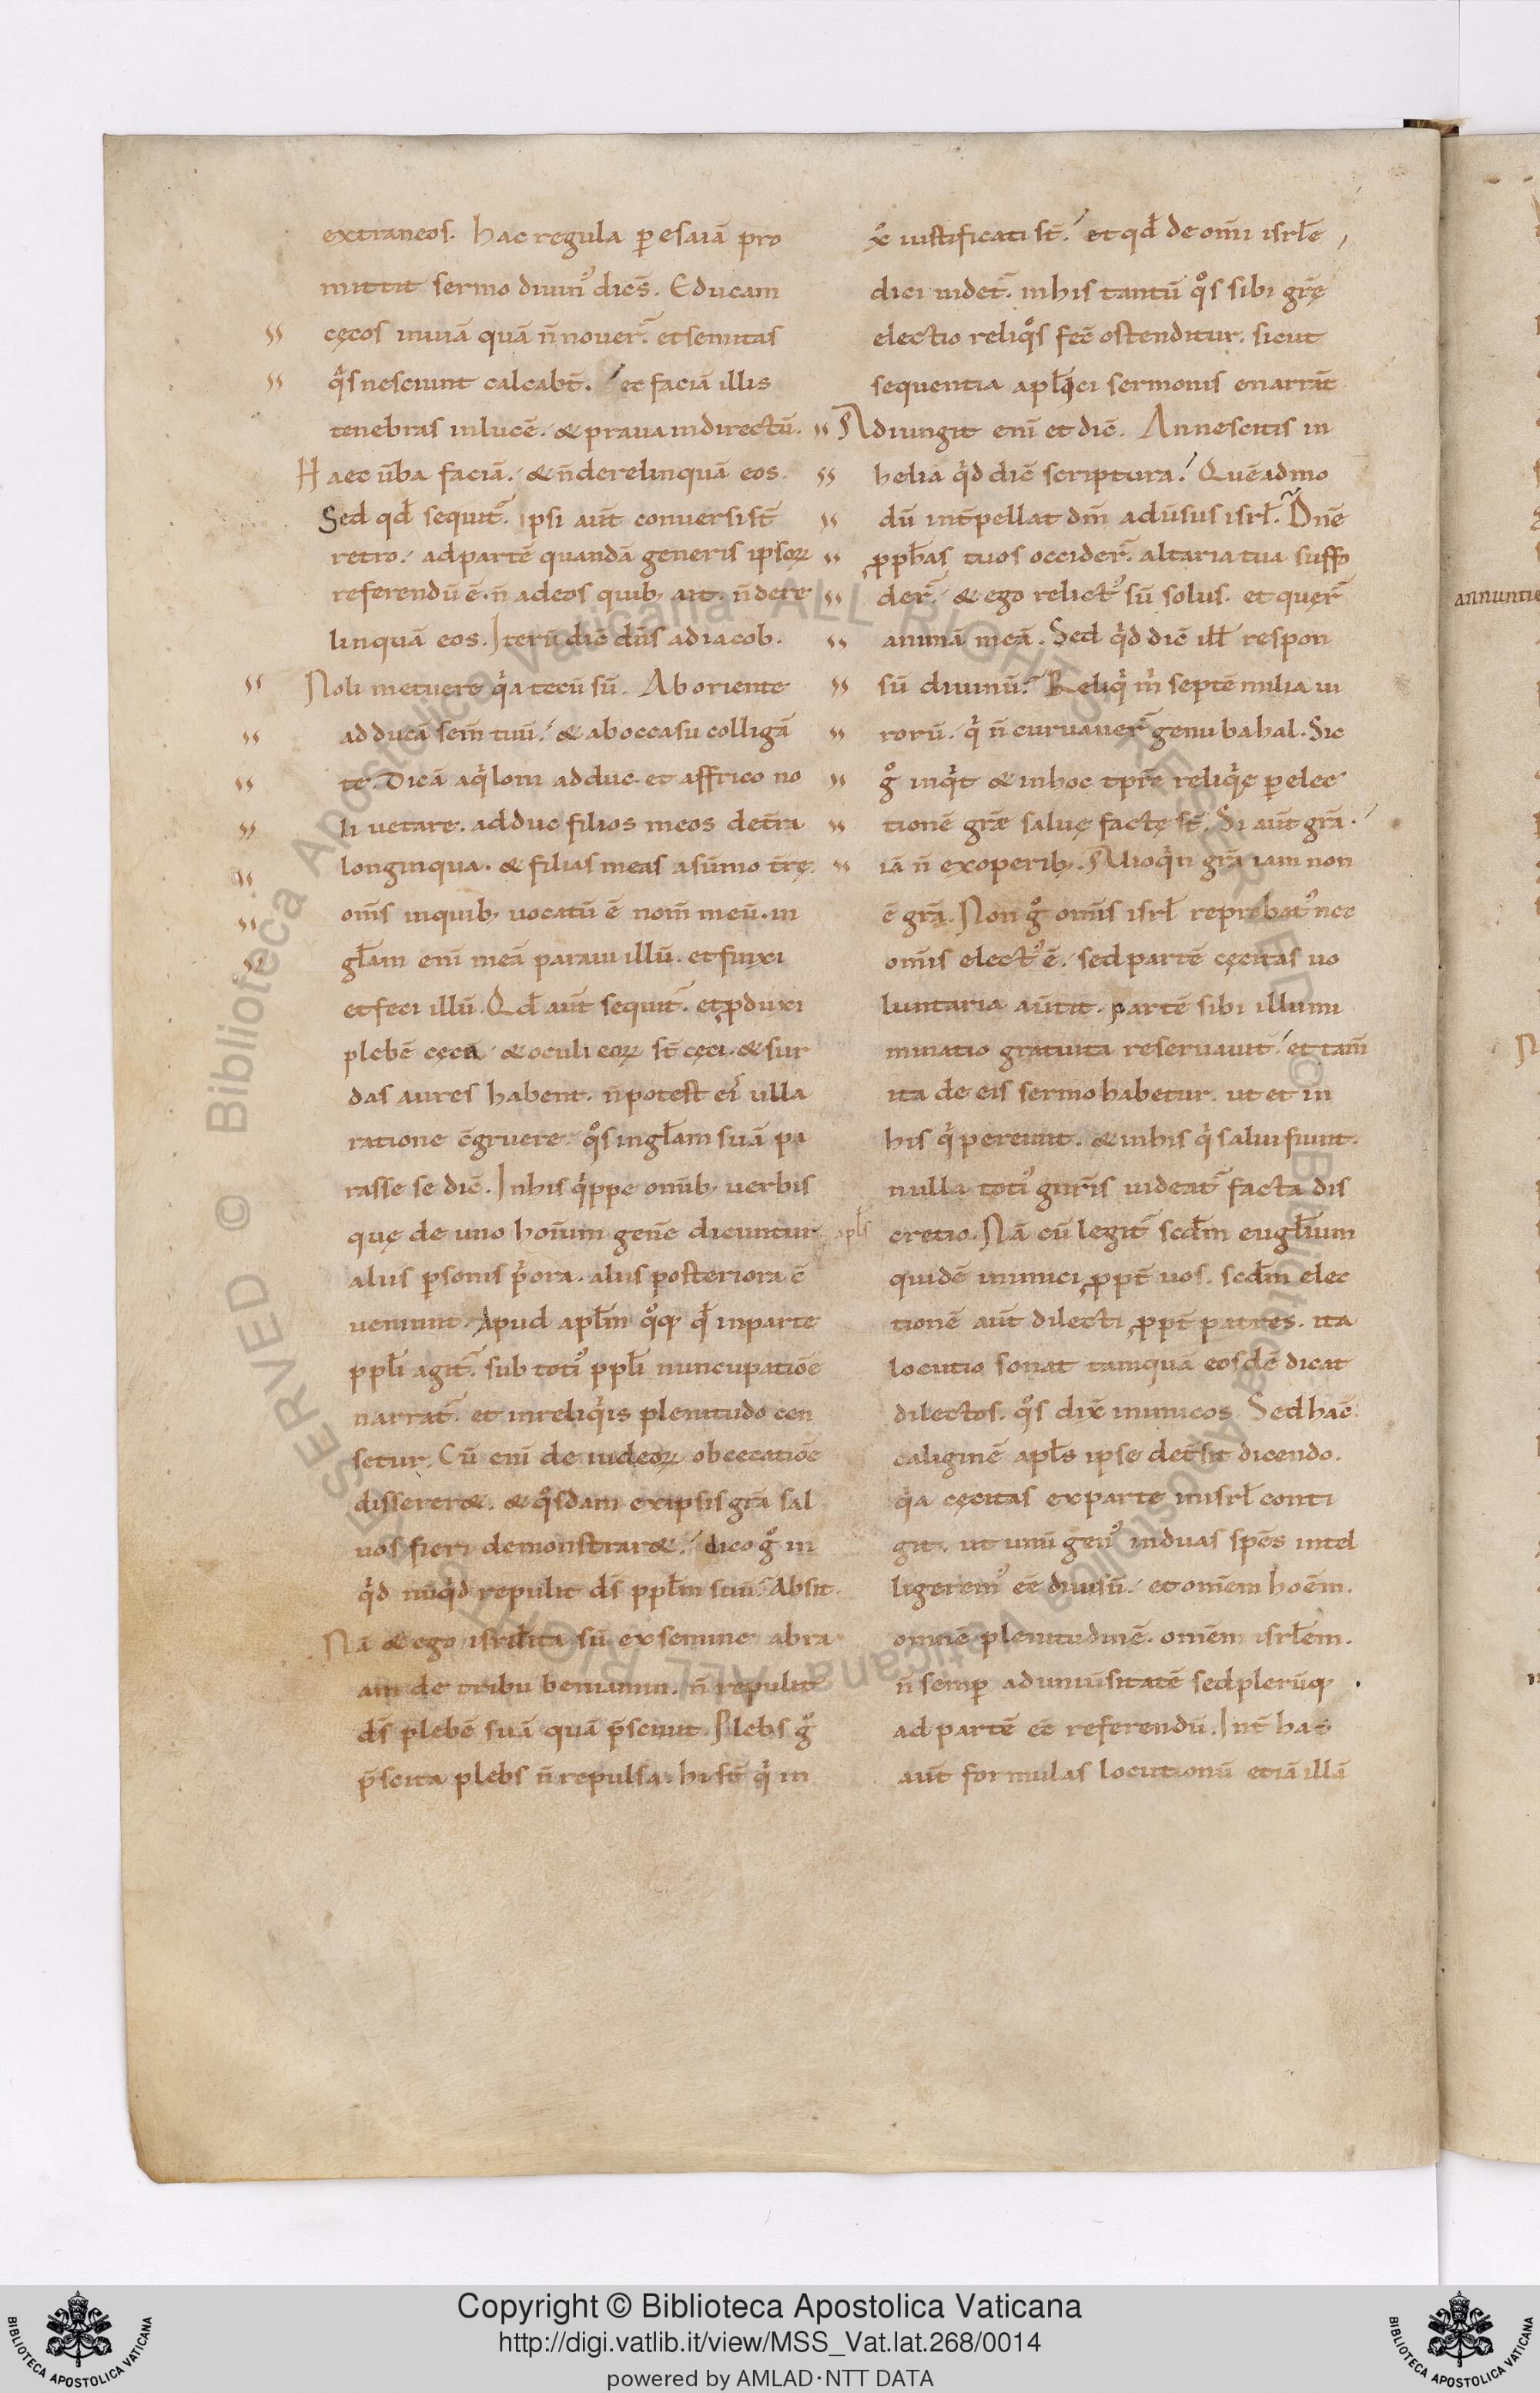 extraneos. hac regula ꝑ esaiā pro
mittit sermo diuinꝰ dicēs. Educam
cęcos inuiā quā n̄ nouer̄. et semitas
qͦs nesciunt calcabt̄. et faciā illis
tenebras inlucē. & praua indirectū.
Haec ūba faciā. & n̄ derelinquā eos.
Sed qd̄ sequit̄. ipsi aut̄ conuersi st̄
retro. ad partē quandā generis ipsoꝝ
referendū ē. n̄ ad eos quibꝫ ait. n̄ dere
linquā eos. Iterū dic̄ dn̄s ad iacob.
Noli metuere qͥa tecū sū. Ab oriente
adducā sem̄ tuū. & ab occasu colligā
te. Dicā aqͥloni adduc. et affrico no
li uetare. adduc filios meos de tr̄a
longinqua. & filias meas a sūmo tr̄ę.
om̄s inquibꝫ uocatū ē nom̄ meū. in
gl̄am eni meā paraui illū. et finxi
et feci illū. Qd̄ aut̄ sequit̄. et ꝓduxi
plebē cęcā. & oculi eoꝝ st̄ cęci. & sur
das aures habent. n̄ potest ei ulla
ratione c̄gruere. qͦs in gl̄am suā pa
rasse se dic̄. In his qͥppe omībꝫ uerbis
quę de uno homīum gen̄e dicuntur
aliis ꝑsonis pͥora. aliis posteriora c̄
ueniunt. Apud apl̄m qͦqꝫ qd̄ inparte
ppl̄i agit̄. sub totiꝰ ppl̄i nuncupatiōe
narrat̄. et in reliqͥis plenitudo cen
setur. Cū eni de iudeoꝝ obcecatiōe
disserer&. & qͦsdam ex ipsis gr̄a sal
uos fieri demonstrar&. dico gͦ in
qͥd nūqͥd repulit ds̄ ppl̄m suū. Absit.
Nā & ego isrl̄ita sū ex semine abra
am de tribu beniamin. n̄ repulit
ds̄ plebē suā quā p̄sciuit. Plebs gͦ
p̄scita plebs n̄ repulsa. hi st̄ qͥ in
xp̄o iustificati st̄. et qd̄ de omi isrl̄e
dici uidet̄. in his tantū qͦs sibi gr̄ę
electio reliqͦs fec̄ ostenditur. sicut
sequentia apl̄ici sermonis enarrāt
Adiungit eni et dic̄. An nescitis in
helia qͥd dic̄ scriptura. Quēadmo
dū int̄pellat dm̄ adūsus isrl̄. Dn̄e
ꝓph̄as tuos occider̄. altaria tua suffo
der̄. & ego relictꝰ sū solus. et quęr̄
animā meā. Sed qͥd dic̄ ill̄ respon
sū diuinū. Reliqͥ mͥ septē milia ui
rorū. qͥ n̄ curuauer̄ genu bahal. Sic
gͦ inqͥt & in hoc tp̄re reliqͥę ꝑ elec
tionē gr̄ę saluę factę st̄. Si aut̄ gr̄a.
iā n̄ ex operibꝫ. Alioqͥn gr̄a iam non
ē gr̄a. Non gͦ om̄is isrl̄ reprobatꝰ nec
om̄is electꝰ ē. sed partē cęcitas uo
luntaria aūtit. partē sibi illumi
minatio gratuita reseruauit. et tam̄
ita de eis sermo habetur. ut et in
his qͥ pereunt. & in his qͥ salui fiunt.
nulla totiꝰ gn̄ris uideat̄ facta dis
apl̄s
cretio. Nā cū legit̄ scd̄m eugl̄ium
quidē inimici ꝓpt̄ uos. scd̄m elec
tionē aut̄ dilecti ꝓpt̄ patres. ita
locutio sonat tamquā eosdē dicat
dilectos. qͦs dix̄ inimicos. Sed hac̄
caliginē apl̄s ipse det̄sit dicendo.
qͥa cęcitas ex parte in isrl̄ conti
git. ut unū genꝰ in duas spēs intel
ligeremꝰ eē diuisū. et omnem hoēm.
omnē plenitudinē. omēm isrl̄em.
n̄ semꝑ ad uniūsitatē sed plerūqꝫ
ad partē eē referendū. Int̄ has
aut̄ formulas locutionū etiā illā
annuntie
Copyright © Biblioteca Apostolica Vaticana
http://digi.vatlib.it/view/MSS_Vat.lat.268/0014
powered by AMLAD·NTT DATA
BIBLIOTECA APOSTOLICA VATICANA
BIBLIOTECA APOSTOLICA VATICANA